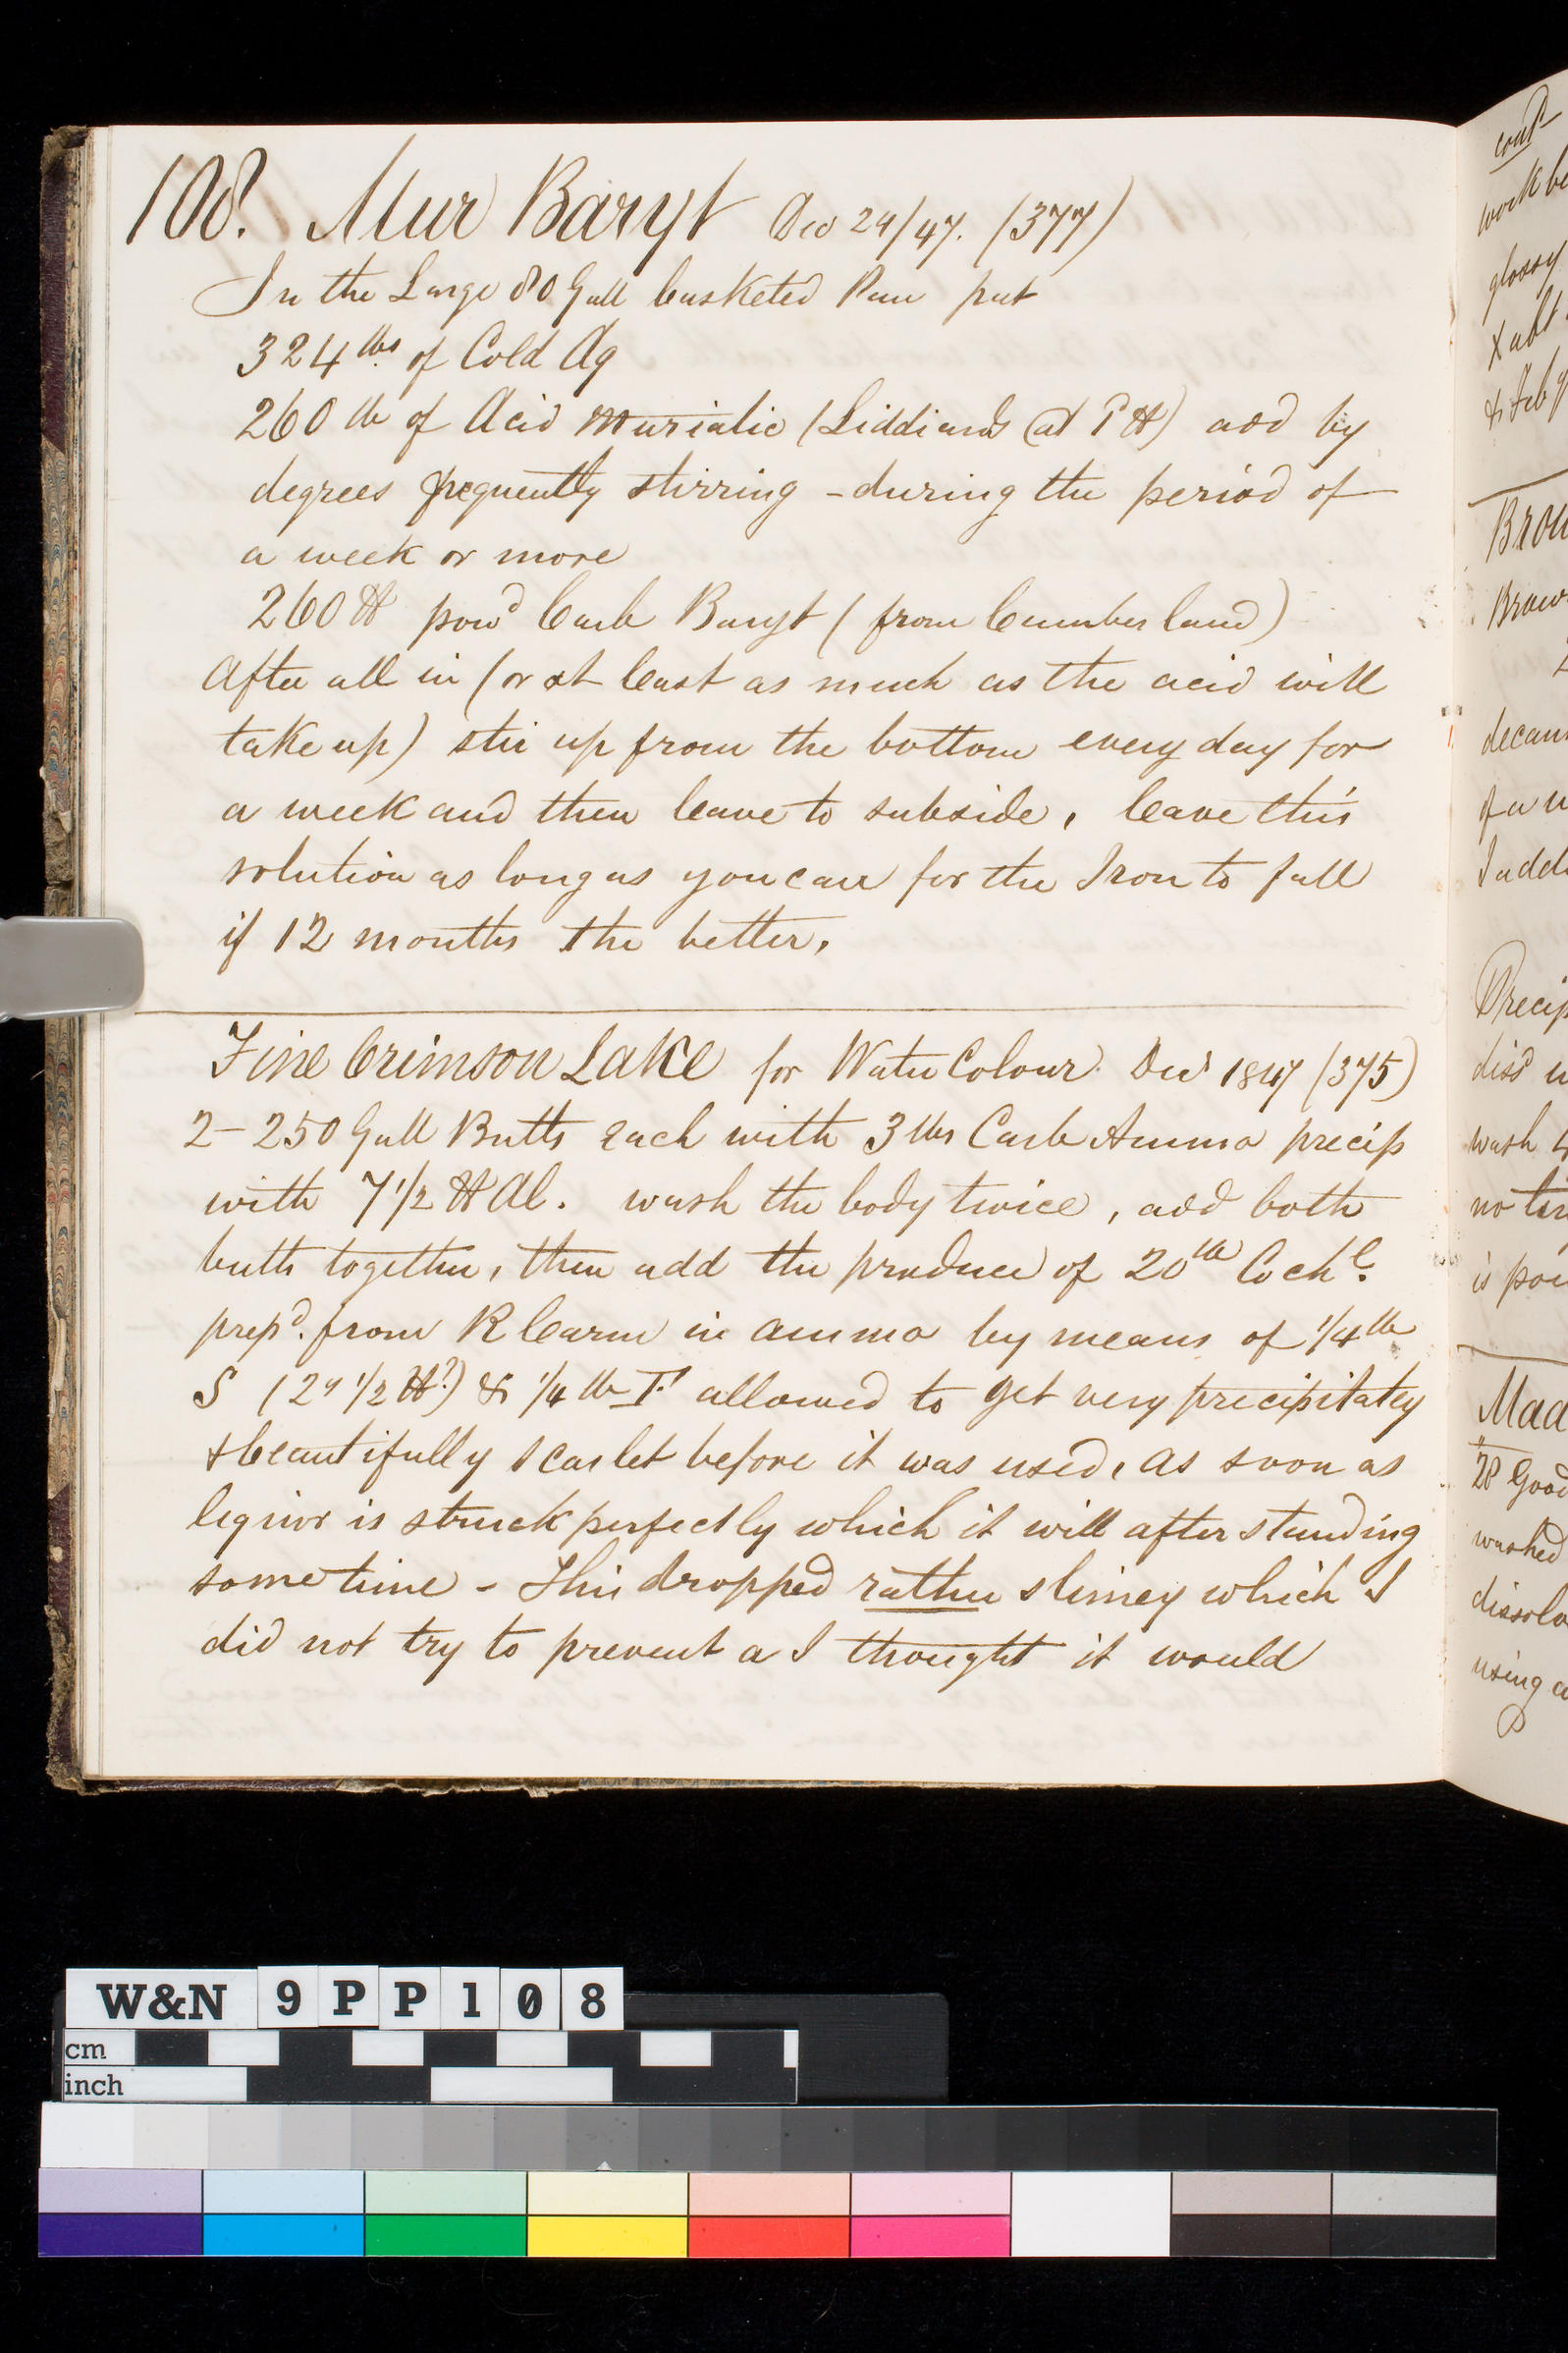 108. Mur Baryt Dec 29/47. (377)
In the Large 80 Gall basketed Pan put
324 lbs. of Cold Aq
260 lb of Acid Muriatic (Liddiards @ 1 ) add by
degrees frequently stirring - during the period of
a week or more
260 lb powd Carb Baryt (from Cumberland)
After all in (or at least as much as the acid will
take up) stir up from the bottom every day for
a week and then leave to subside, leave this
solution as long as you can for the Iron to fall
if 12 months the better,
Fine Crimson Lake for Water Colour. Decr 1847 (375)
2-250 Gall Butts each with 3 lbs Carb Ammo precip
with 7 1/2 lb Al. wash the body twice, add both
butts together, then add the produce of 20 lb Cochl.
prepd. from R Carm in ammo by means of 1/4 lb
S (29 1/2 lb?) & 1/4 lb T allowed to get very precipitatey
& beautifully scarlet before it was used, as soon as
liquor is struck perfectly which it will after standing
some time - This dropped rather slimey which I
did not try to prevent a I thought it would
cont
work be
glossy
x abt
& Feb y
Brow
Brow
decan
of a w
I adde
Precip
dissd w
wash
no
is pou
Mad
28 Good
washed
dissolv
using a
W&N 9PP108
cm
inch